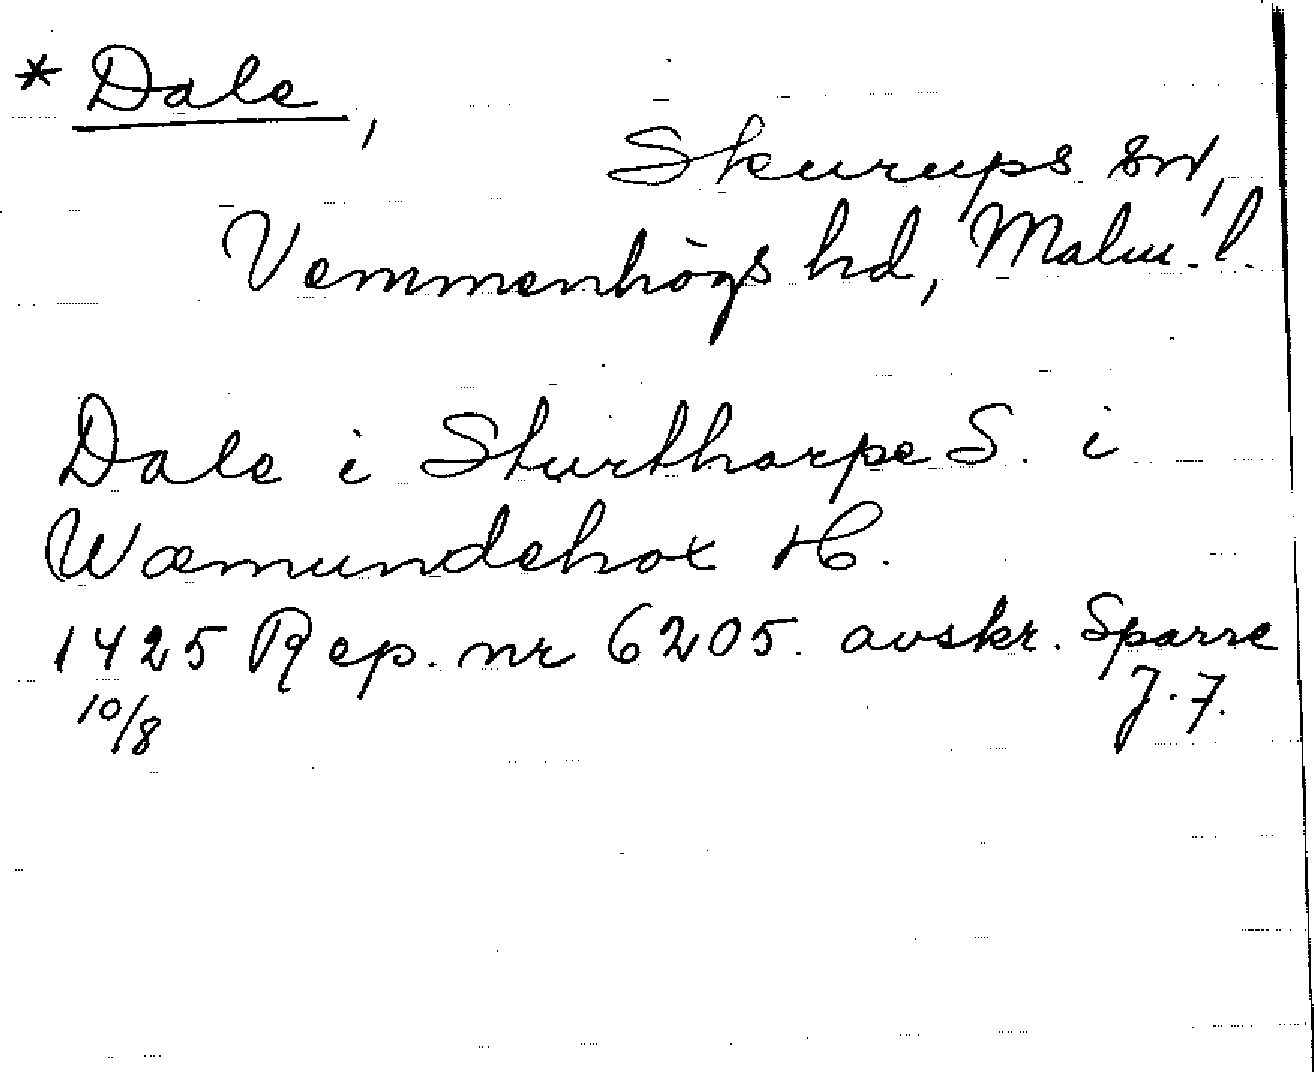 * Dale,
Skurups sn,
Vemmenhögs hd, Malm. l.
Dale i Skurthorpe S. i
Wæmundehox H.
1425 Rep. nr 6205. avskr. Sparre
10/8 J. F.